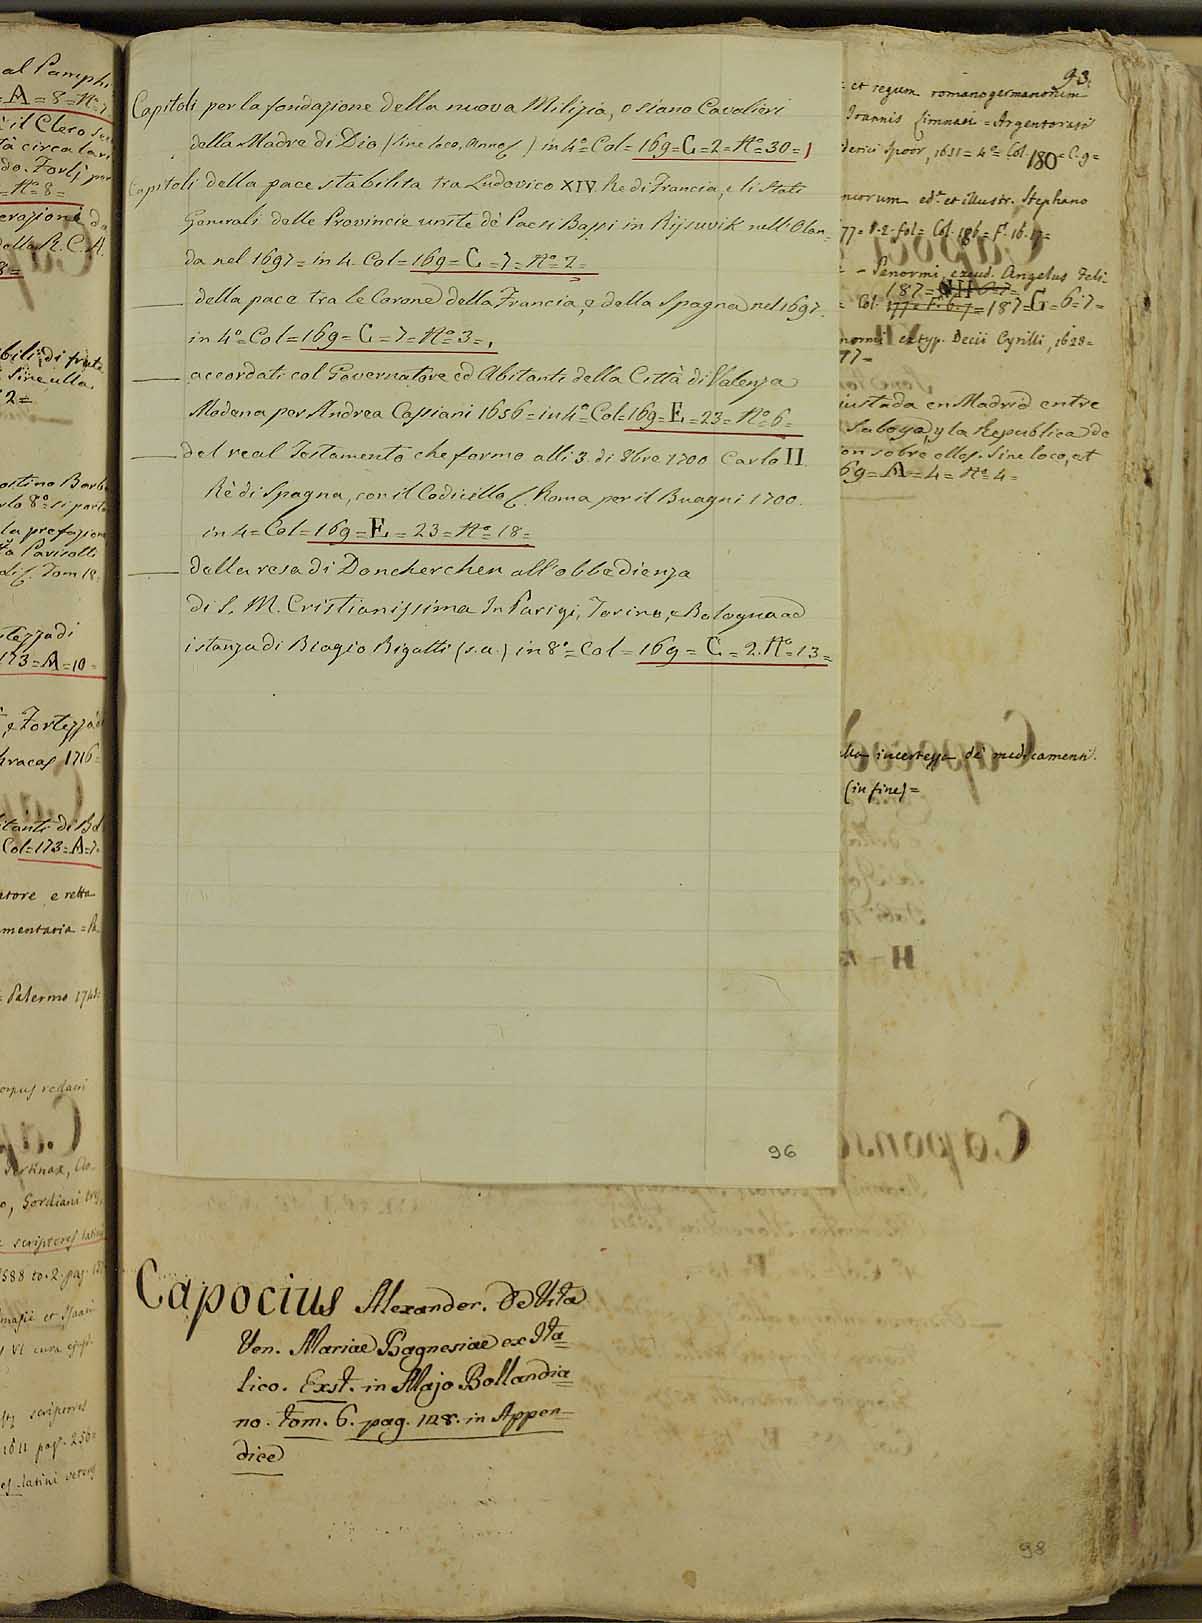 Capitoli per la fondazione della nuova Milizia, o siano Cavalieri
della Madre di Dio (sine loco, anno) in 4º = Col = 169 = C = 2 = Nº = 30 =
Capitoli della pace stabilita tra Ludovico XIV. Re di Francia, e li Stati
Generali delle Provincie unite de' Paesi Bassi in Rijsuvik nell' Olan=
da nel 1697 = in 4. Col = 169 = C = 7 = Nº 2 =
della pace tra le Corone della Francia, e della Spagna nel 1697.
in 4º = Col = 169 = C = 7 = Nº 3 =
accordati col Governatore ed Abitanti della Città di Valenza
Modena per Andrea Cassiani 1656 = in 4º = Col = 169 = E = 23 = Nº 6 =
del real Testamento che formo alli 3. di 8bre 1700 Carlo II.
Rè di Spagna, con il Codicillo. Roma per il Buagni 1700.
in 4 = Col = 169 = E = 23 = Nº 18 =
della resa di Doncherchen all' obbedienza
di S. M. Cristianissima In Parigi, Torino, e Bologna ad
istanza di Biagio Rigatti (s.a.) in 8º = Col = 169 = C = 2. Nº = 13 =
96
93.
et regum romanogermanorum
Ioannis = Argentorati
Spoor, 1631 = 4º = Col 180 = C. 9 =
et illustr. Stephano
77 = P. 2 = fol = Col. 186 = F. 16. 17 =
Panormi, excud. Angelus Feli-
187 =
Col. 177 = F. 6. 7 = 187 = G = 6 = 7 =
ex typ. Decii Cyrilli, 1628 =
iustada en Madrid entre
Saboya, y la Republica de
sobre ellos. Sine loco, et
69 = A = 4 = Nº 4 =
incertezza de' medicamenti.
(in fine) =
Capocius Alexander. De Vita
Ven. Mariae Bagnesiae ex Ita=
lico. Exst. in Majo Bollandia=
no. tom. 6. pag. 128. in Appen=
dice
98
al Pamphi
= A = 8 = Nº 7
il Clero
circolari
= Nº 8 =
della R. C. A.
8 =
di frute
sine ulla
2 =
la prefazione
Tom 18
173 = A = 10 =
e Fortezza
1716 =
Col = 173 = A = 7 =
e retta
= Palermo 174
corpus redacti
Gordiani
scriptores latini
1588 to. 2. pag.
scriptores
1611 pag. 256
latini veteres